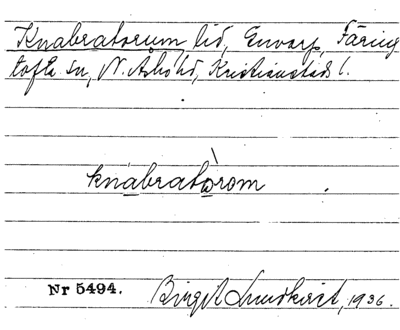 Knabratorum, lid, Emarp, Färing
tofta sn, N. Åsbo hd, Kristianstads l.
knabratòrom
Nr 5494.
Birgit Lundkvist, 1936.